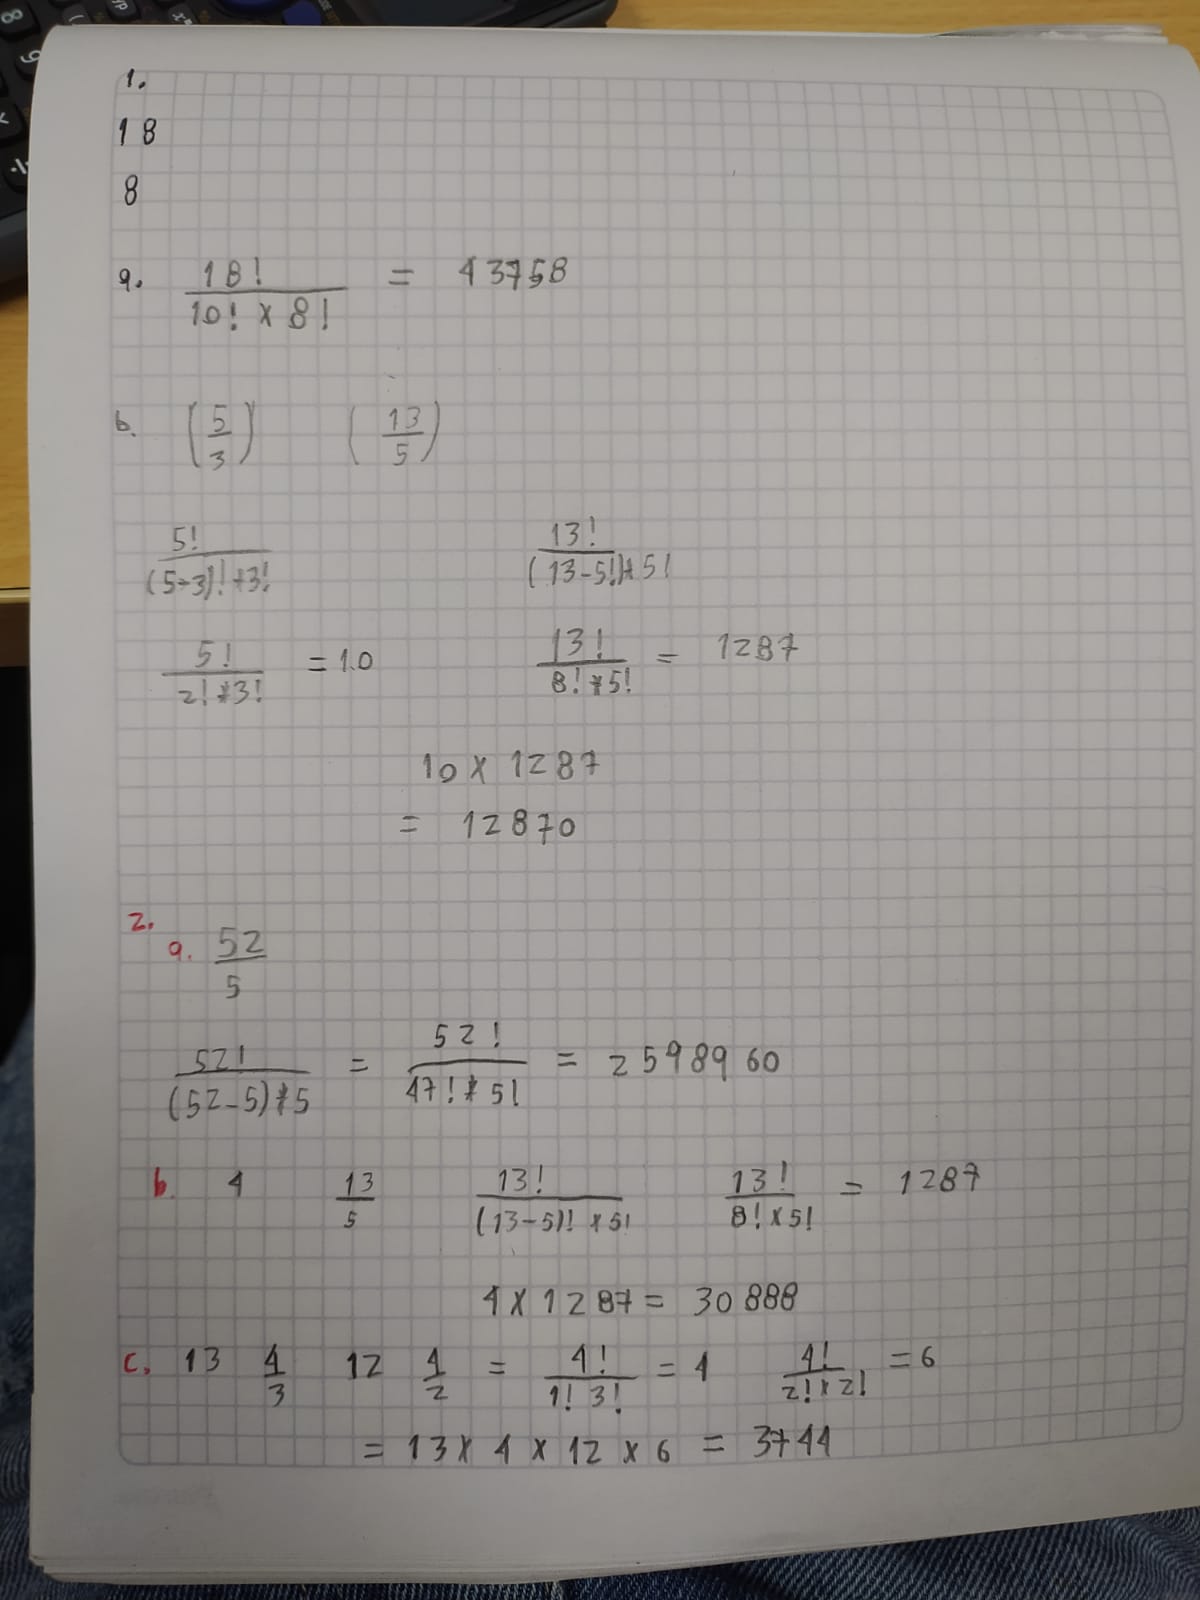 1.
18
8
a. 18! / 10! x 8! = 43758
b. (5/3) (13/5)
5! / (5-3)! *3! 13! / (13-5!)* 5!
5! / 2! *3! = 10 13! / 8! *5! = 1287
10 x 1287
= 12870
2.
a. 52/5
52! / (52-5)*5 = 52! / 47! * 5! = 2598960
b. 4 13/5 13! / (13-5)! x 5! 13! / 8! x 5! = 1287
4 x 1287 = 30888
c. 13 4/3 12 4/2 = 4! / 1! 3! = 4 4! / 2! x 2! = 6
= 13 x 4 x 12 x 6 = 3744